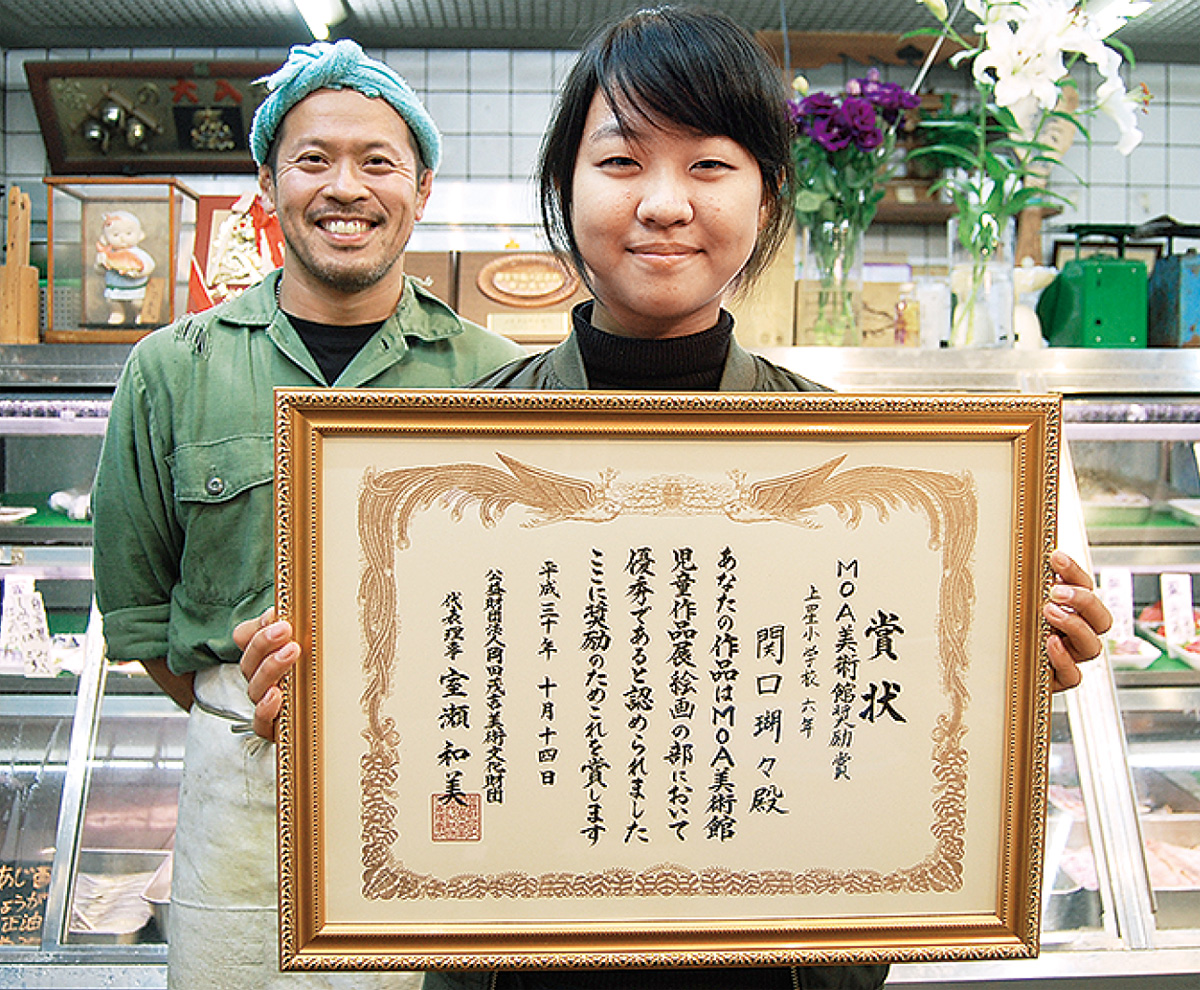 賞状
MOA美術館奨励賞
上星小学校 六年
関口瑚々殿
あなたの作品はMOA美術館
児童作品展絵画の部において
優秀であると認められました
ここに奨励のためこれを賞します
平成三十年 十月十四日
公益財団法人岡田茂吉美術文化財団
代表理事 室瀬和美
大入
あじ
しょうが
正油